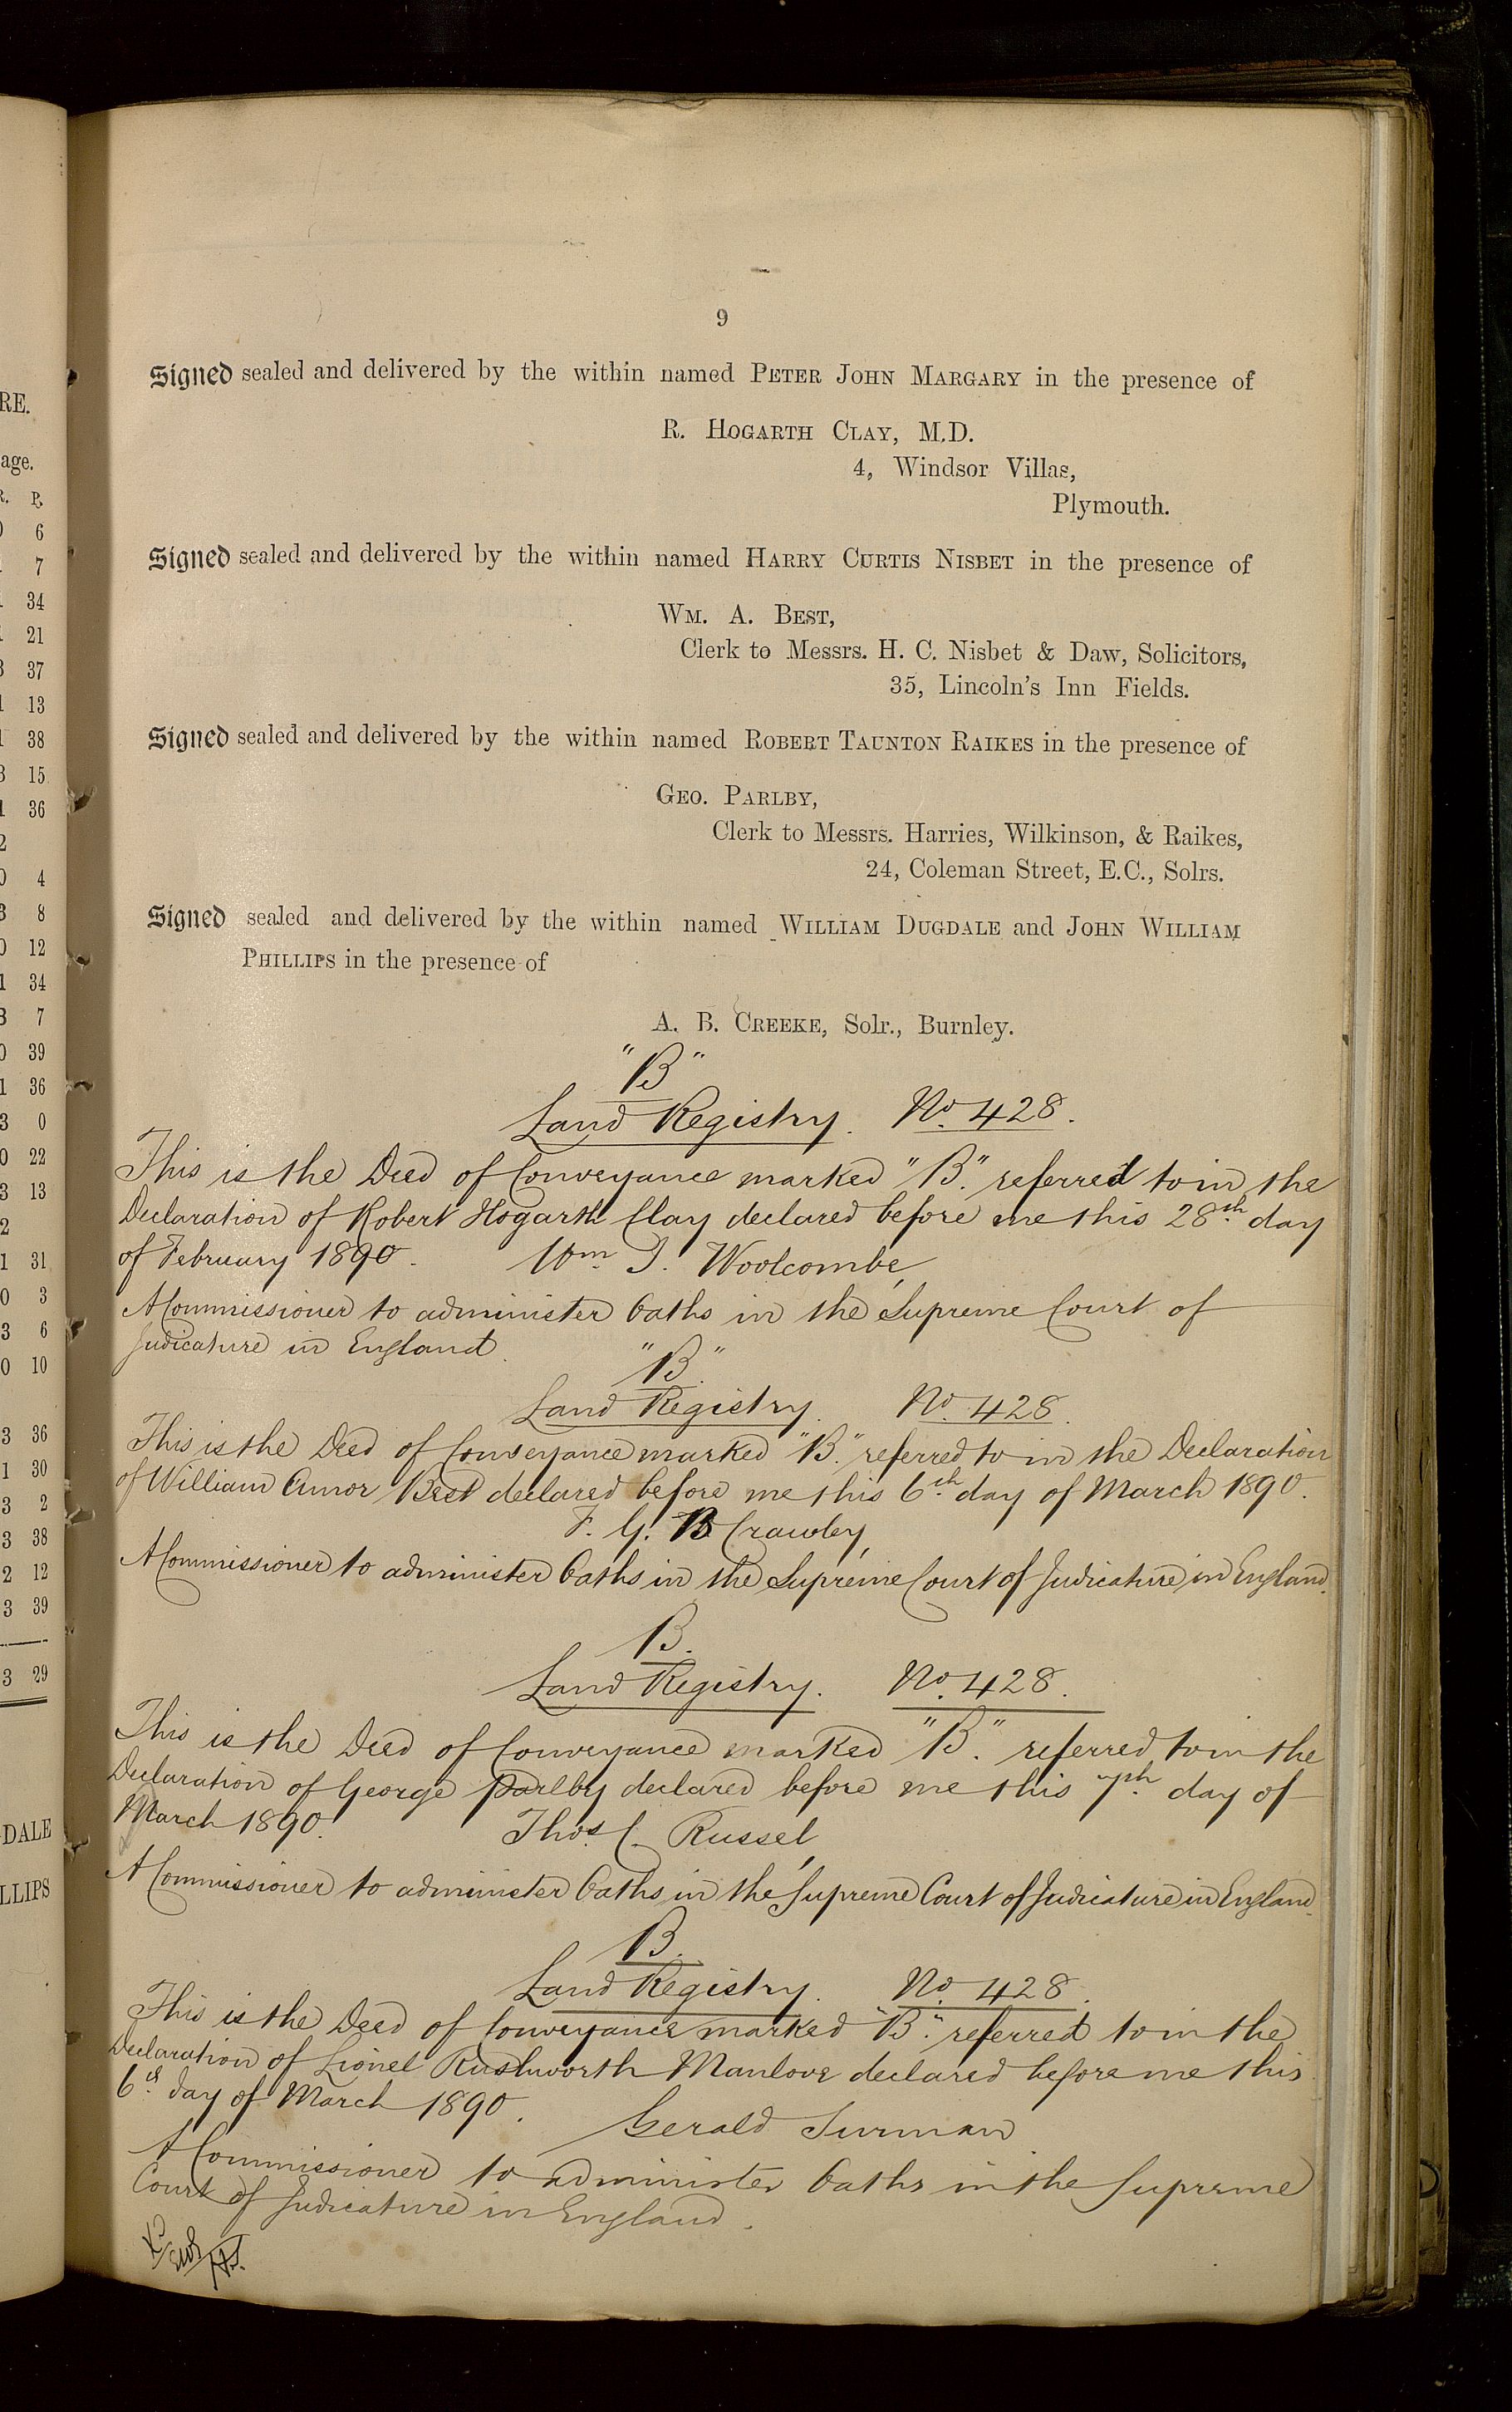 9
Signed sealed and delivered by the within named PETER JOHN MARGARY in the presence of
R. HOGARTH CLAY, M.D.
4, Windsor Villas,
Plymouth.
Signed sealed and delivered by the within named HARRY CURTIS NISBET in the presence of
WM. A. BEST,
Clerk to Messrs. H. C. Nisbet & Daw, Solicitors,
35, Lincoln's Inn Fields.
Signed sealed and delivered by the within named ROBERT TAUNTON RAIKES in the presence of
GEO. PARLBY,
Clerk to Messrs. Harries, Wilkinson, & Raikes,
24, Coleman Street, E.C., Solrs.
Signed sealed and delivered by the within named WILLIAM DUGDALE and JOHN WILLIAM
PHILLIPS in the presence of
A. B. CREEKE, Solr., Burnley.
"B"
Land Registry. No. 428.
This is the Deed of Conveyance marked "B." referred to in the
Declaration of Robert Hogarth Clay declared before me this 28th day
of February 1890. Wm. J. Woolcombe,
A Commissioner to administer Oaths in the Supreme Court of
Judicature in England.
"B."
Land Registry. No. 428.
This is the Deed of Conveyance marked "B." referred to in the Declaration
of William Amor Best declared before me this 6th day of March 1890.
F. G. B Crawley,
A Commissioner to administer Oaths in the Supreme Court of Judicature in England.
B.
Land Registry. No. 428.
This is the Deed of Conveyance marked "B." referred to in the
Declaration of George Parlby declared before me this 7th day of
March 1890. Thos. C. Russel,
A Commissioner to administer Oaths in the Supreme Court of Judicature in England.
B.
Land Registry. No. 428.
This is the Deed of Conveyance marked "B." referred to in the
Declaration of Lionel Rushworth Manlove declared before me this
6th day of March 1890. Gerald Surman
A Commissioner to administer Oaths in the Supreme
Court of Judicature in England.